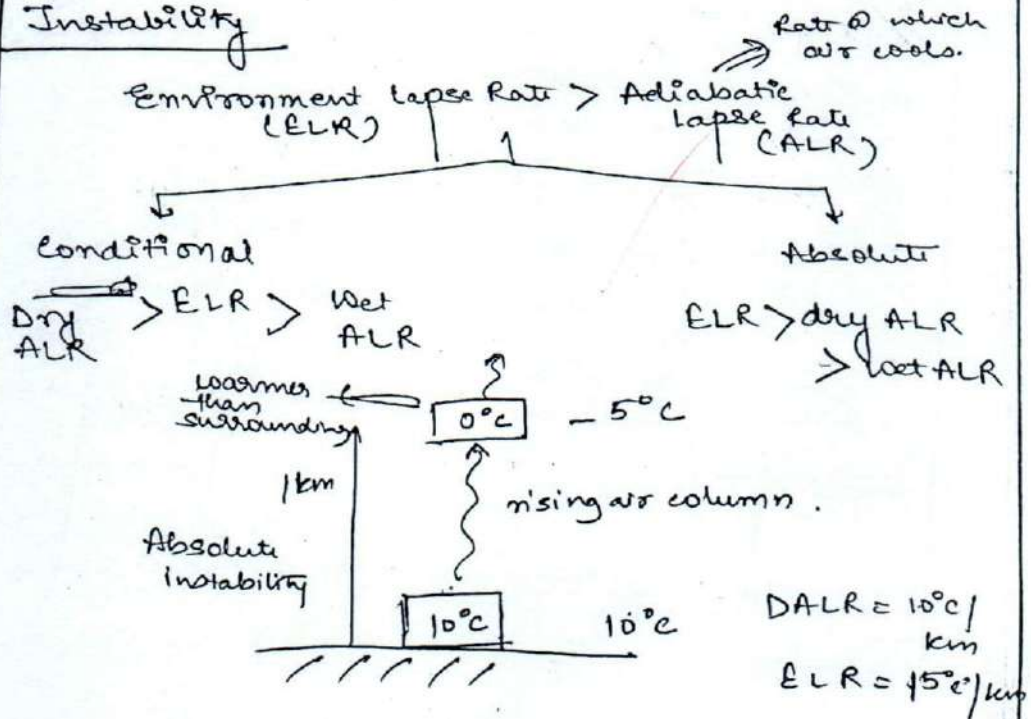 Instability
Rate @ which
air cools.
Environment Lapse Rate > Adiabatic
(ELR)
Lapse Rate
(ALR)
Conditional
Absolute
Dry ALR > ELR > Wet ALR
ELR > dry ALR
> Wet ALR
warmer
than
surrounding
0°C
- 5°C
1km
rising air column.
Absolute
instability
10°C
10°C
DALR = 10°C/
km
ELR = 15°C/km